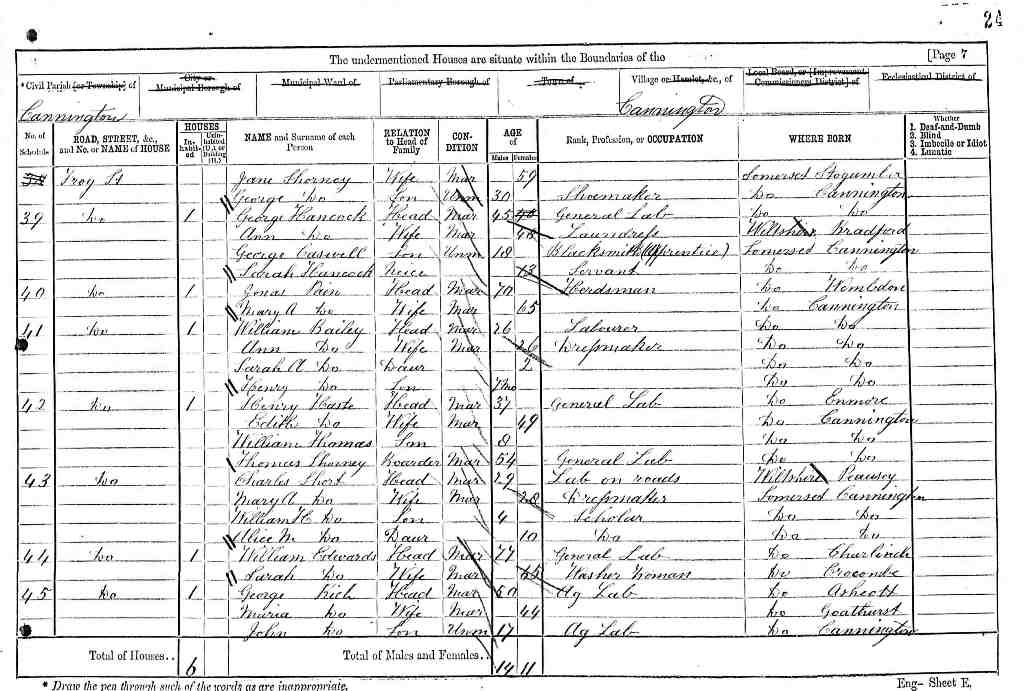 24
The undermentioned Houses are situate within the Boundaries of the [Page 7
* Civil Parish [or Township] of City or Municipal Borough of Municipal Ward of Parliamentary Borough of Town of Village or Hamlet, &c., of Local Board, or [Improvement Commissioners District] of Ecclesiastical District of
Cannington Cannington
No. of Schedule ROAD, STREET, &c., and No. or NAME of HOUSE HOUSES Inhabited Uninhabited (U.), or Building (B.) NAME and Surname of each Person RELATION to Head of Family CONDITION AGE of Males Females Rank, Profession, or OCCUPATION WHERE BORN Whether 1. Deaf-and-Dumb 2. Blind 3. Imbecile or Idiot 4. Lunatic
Troy St Jane Chorney Wife Mar 59 Somerset Stogumber
George Do Son Unm 30 Shoemaker Do Cannington
39 Do 1 George Hancock Head Mar 45 General Lab Do Do
Ann Do Wife Mar 48 Laundress Wiltshire Bradford
George Caswell Son Unm 18 Blacksmith (Apprentice) Somerset Cannington
Sarah Hancock Neice 13 Servant Do Do
40 Do 1 Jonas Pain Head Mar 70 Herdsman Do Wembdon
Mary A Do Wife Mar 65 Do Cannington
41 Do 1 William Bailey Head Mar 26 Labourer Do Do
Ann Do Wife Mar 26 Dressmaker Do Do
Sarah A Do Daur 2 Do Do
Henry Do Son 7mo Do Do
42 Do 1 Henry Haste Head Mar 37 General Lab Do Enmore
Edith Do Wife Mar 49 Do Cannington
William Thomas Son 8 Do Do
Thomas Boarder Mar 54 General Lab Do Do
43 Do Charles Short Head Mar 29 Lab on roads Wiltshire Peausey
Mary A Do Wife Mar 28 Dressmaker Somerset Cannington
William H Do Son 4 Scholar Do Do
Alice M Do Daur 10 Do Do Do
44 Do 1 William Edwards Head Mar 77 General Lab Do Charlinch
Sarah Do Wife Mar 65 Washer Woman Do Crocombe
45 Do 1 George Rich Head Mar 50 Ag Lab Do Ashcott
Maria Do Wife Mar 44 Do Goathurst
John Do Son Unm 17 Ag Lab Do Cannington
Total of Houses.. 6 Total of Males and Females.. 14 11
* Draw the pen through such of the words as are inappropriate. Eng- Sheet E.